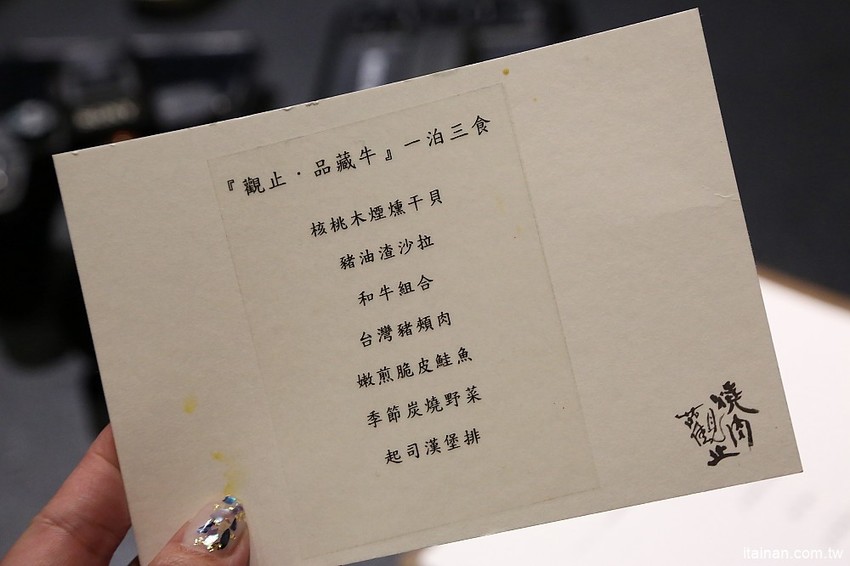 『觀止·品藏牛』一泊三食
核桃木煙燻干貝
豬油渣沙拉
和牛組合
台灣豬頰肉
嫩煎脆皮鮭魚
季節炭燒野菜
起司漢堡排
燒肉
觀止
itainan.com.tw